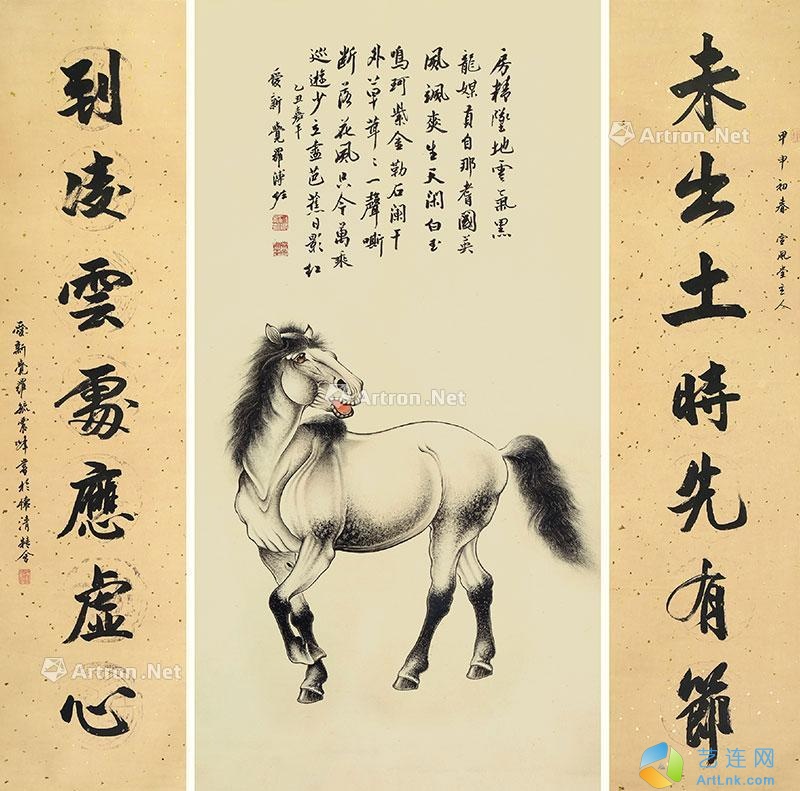 甲申初春 風堂主人
未出土時先有節
房精墜地雲氣黑
龍媒貢自那耆國英
風颯爽生天闲白玉
鳴珂紫金勒石闌干
外草茸〻一聲嘶
断落花風只今萬乘
巡遊少立盡芭蕉日影紅
乙丑嘉平
愛新覺羅溥佐
到凌雲處應虛心
愛新覺羅毓震峰書於清精舍
Artron.Net
Artron.Net
Artron.Net
Artron.Net
Artron.Net
艺连网
ArtLnk.com